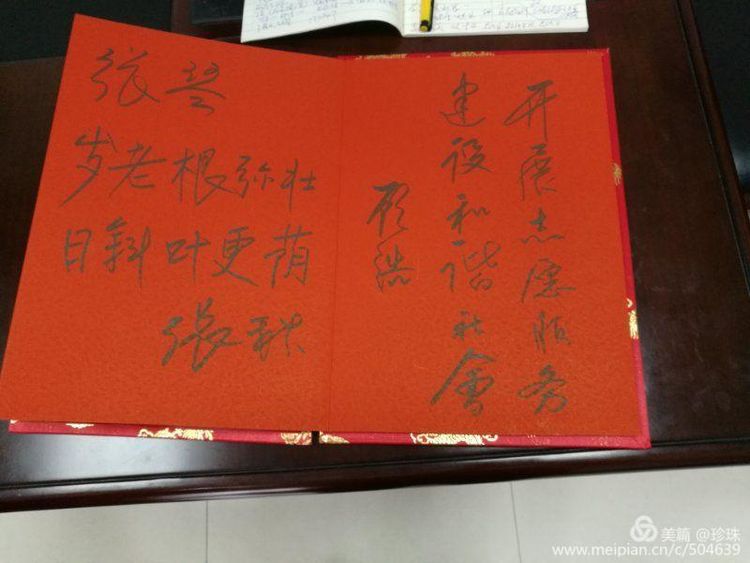 张琴
岁老根弥壮
日斜叶更荫
张
开展志愿服务
建设和谐社会
顾浩
美篇 @珍珠
www.meipian.cn/c/504639